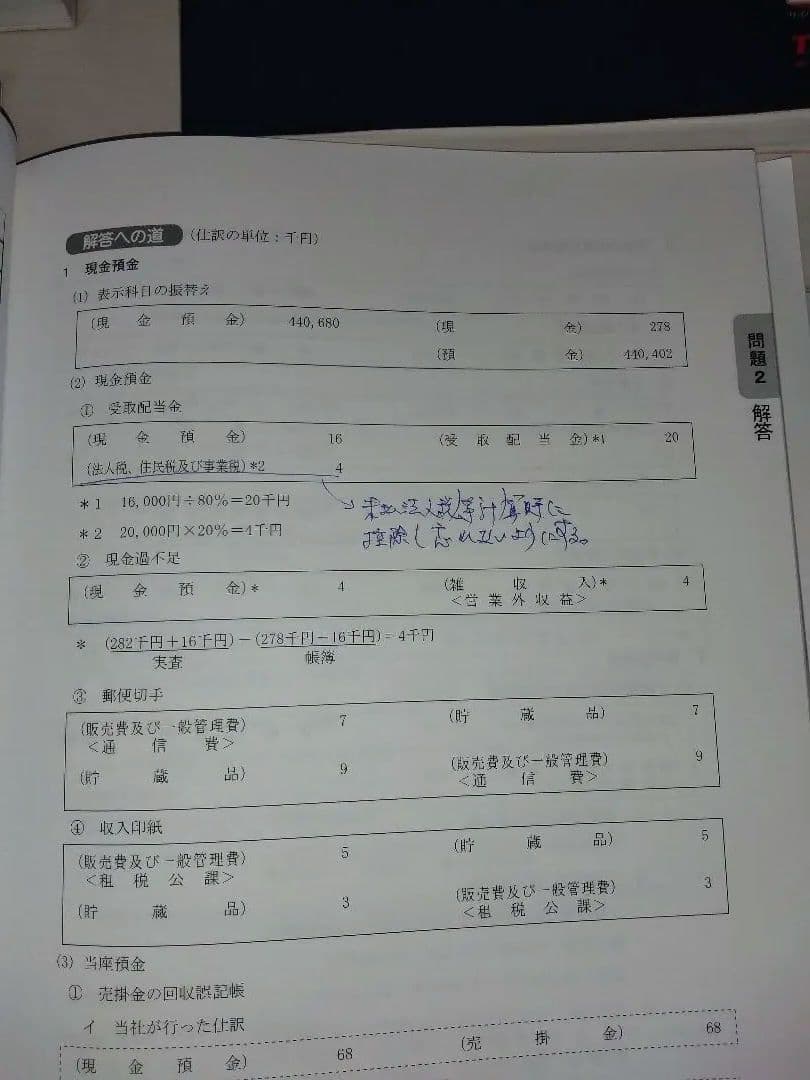 解答への道 (仕訳の単位：千円)
1 現金預金
(1) 表示科目の振替え
(現金預金) 440,680 (現金) 278
(預金) 440,402
(2) 現金預金
① 受取配当金
(現金預金) 16 (受取配当金)*1 20
(法人税、住民税及び事業税)*2 4
*1 16,000円÷80%＝20千円
*2 20,000円×20%＝4千円
未払法人税等計算時に
控除し忘れないようにする。
② 現金過不足
(現金預金)* 4 (雑収入)* 4
＜営業外収益＞
* (282千円＋16千円)－(278千円＋16千円)＝4千円
実査 帳簿
③ 郵便切手
(販売費及び一般管理費) 7 (貯蔵品) 7
＜通信費＞
(貯蔵品) 9 (販売費及び一般管理費) 9
＜通信費＞
④ 収入印紙
(販売費及び一般管理費) 5 (貯蔵品) 5
＜租税公課＞
(貯蔵品) 3 (販売費及び一般管理費) 3
＜租税公課＞
(3) 当座預金
① 売掛金の回収誤記帳
イ 当社が行った仕訳
(現金預金) 68 (売掛金) 68
問題2
解答